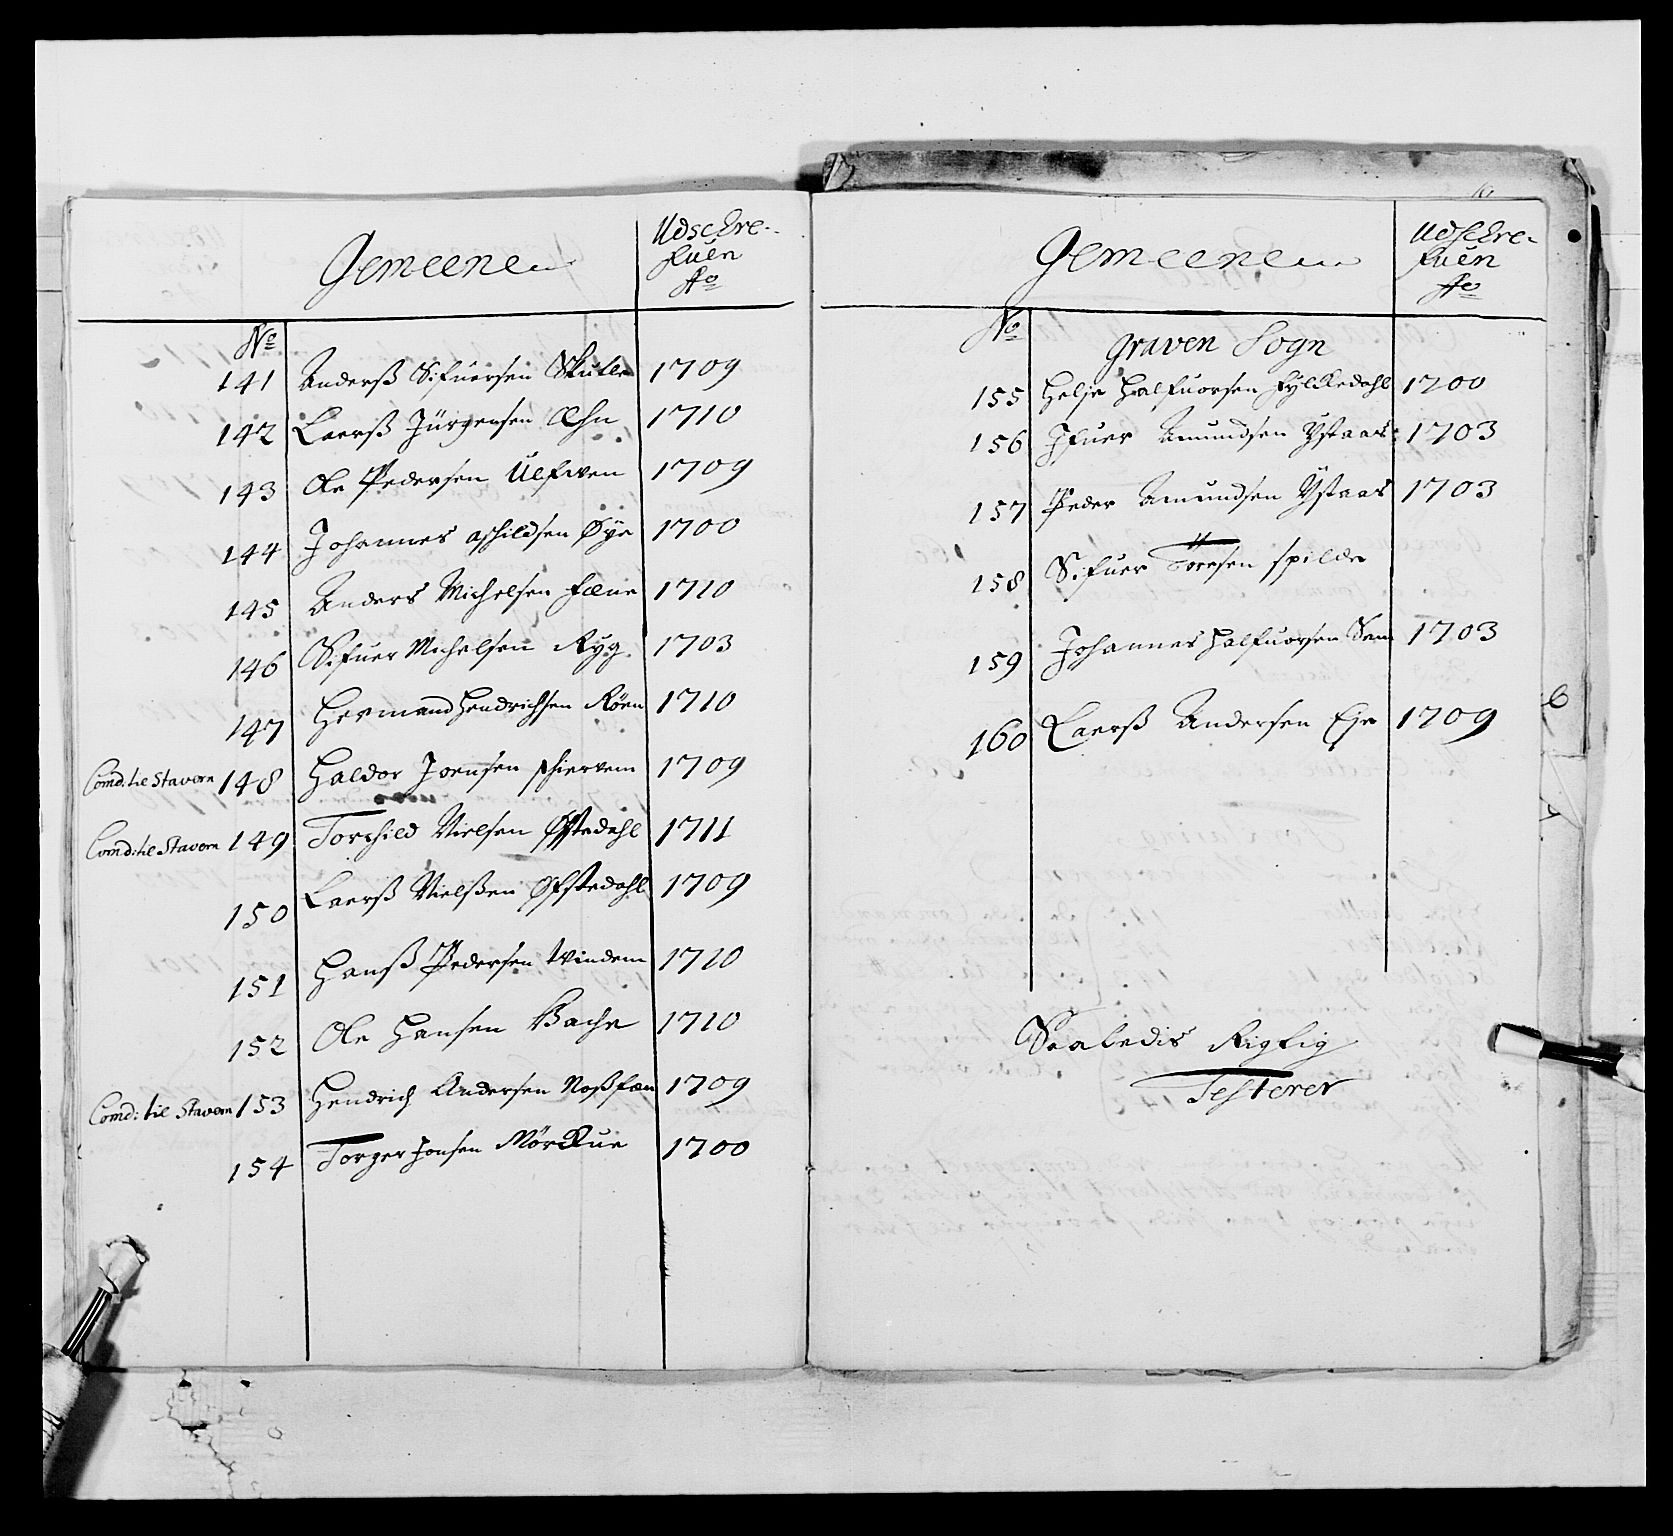 Gemeene
Udschre-
fuen
Ao
No
141 Anderß Sifuersen Skutle 1709
142 Laerß Jürgensen Æhn 1710
143 Ole Pedersen Ulfwen 1709
144 Johannes aschildsen Øye 1700
145 Anders Michelsen Fæne 1710
146 Sifuer Michelsen Ryg 1703
147 Hermand Hendrichsen Röen 1710
Comd: til Stavern 148 Haldor Joensen schierven 1709
Comd: til Stavern 149 Torchild Nielsen Øfstedahl 1711
150 Laerß Nielßen Øfstedahl 1709
151 Hanß Pedersen twindem 1710
152 Ole Hansen Bache 1710
Comd: til Stavern 153 Hendrich Andersen Noßfæn 1709
154 Torger Jonsen Mørkue 1700
Gemeene
Udschre-
fuen
Ao
No
Graven Sogn
155 Helje Halfuorsen Fylkedahl 1700
156 Ifuer Amundsen Ystaas 1703
157 Peder Amundsen Ystaas 1703
158 Sifuer Töresen spilde
159 Johannes Halfuorsen Sem 1703
160 Laerß Andersen Eje 1709
Saaledis Rigtig
Testerer